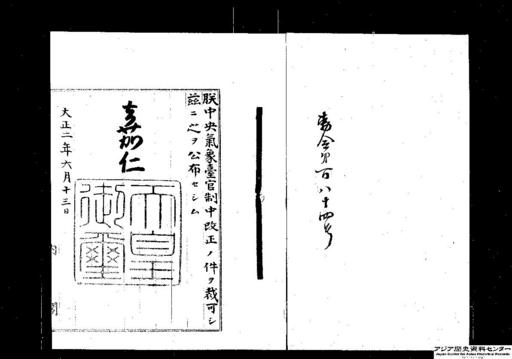 勅令第百八十四号
朕中央氣象臺官制中改正ノ件ヲ裁可シ
茲ニ之ヲ公布セシム
嘉仁
天皇御璽
大正二年六月十三日
内閣
アジア歴史資料センター
Japan Center for Asian Historical Records